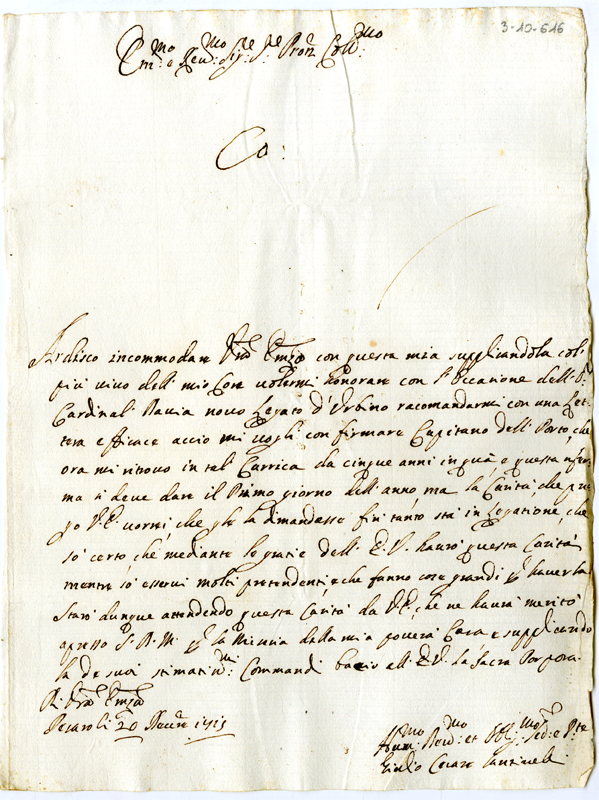 3-10-616
Em:mo e Rev:mo Sig:re Pre Pron Coll:mo
Co:
Ardisco incommodare Vra Emza con questa mia supplicandola col
piu vivo dell' mio Core volermi honorare con l'Occasione dell' S.r
Cardinal' Davia novo Legato d'Urbino racomandarmi con una Let=
tera efficace accio mi vogli confirmare Capitano dell' Porto, che
ora mi ritrovo in tal' Carrica da cinque anni in quà e questa nfer
ma si deve dare il Primo giorno dell' anno ma la Carità, che pre
go V.E. vorrei, che gle la dimandasse fin tanto stà in Legatione, che
sò certo, che mediante le gratie dell' E.V. haurò questa Carità
mentre sò esservi molti pretendenti, e che fanno cose grandi p haverla
Starò dunque attendendo questa Carità da V.E. che ne haurà merito
apresso S.D.M. p la Miseria della mia povera Casa e supplicando
la de suoi stimatis:mi Commandi bacio all' E.V. la Sacra Porpora
D. Vra Emza
Pesaro li 20 Novre 1715
Hum:mo Devo:mo et Obl:mo Sed: e
Giulio Cesare